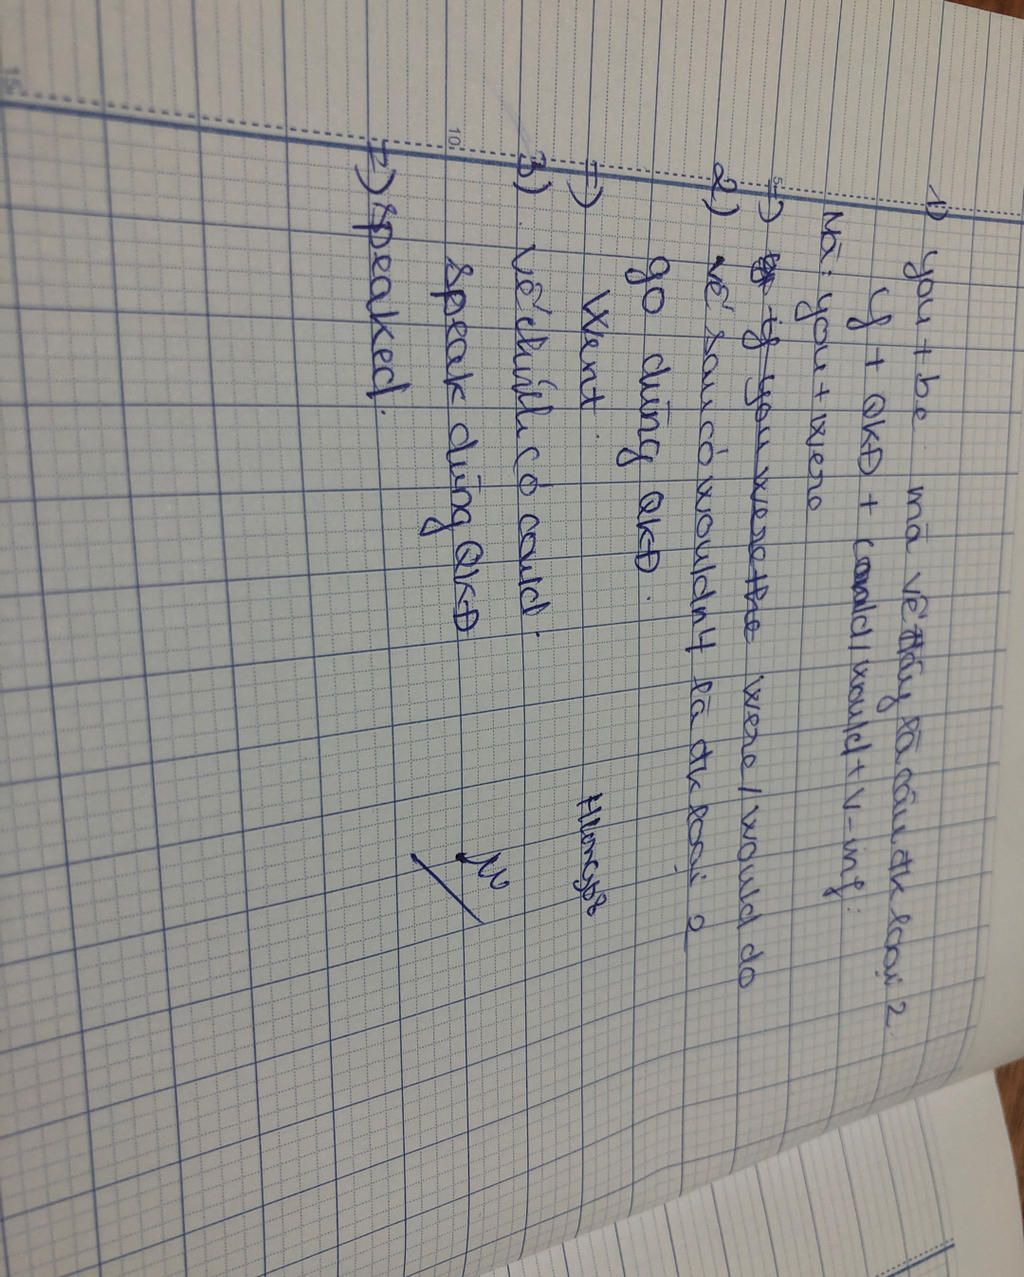 1) you + be mà vế đây là câu đk loại 2
if + QKĐ + could / would + V-inf:
Mà: you + were
=) if you were the were / would do
2) vế sau có wouldn't là đk loại 2
go dùng QKĐ.
=) Went.
3) vế chính có could.
speak dùng QKĐ
=) speaked.
15
10
5